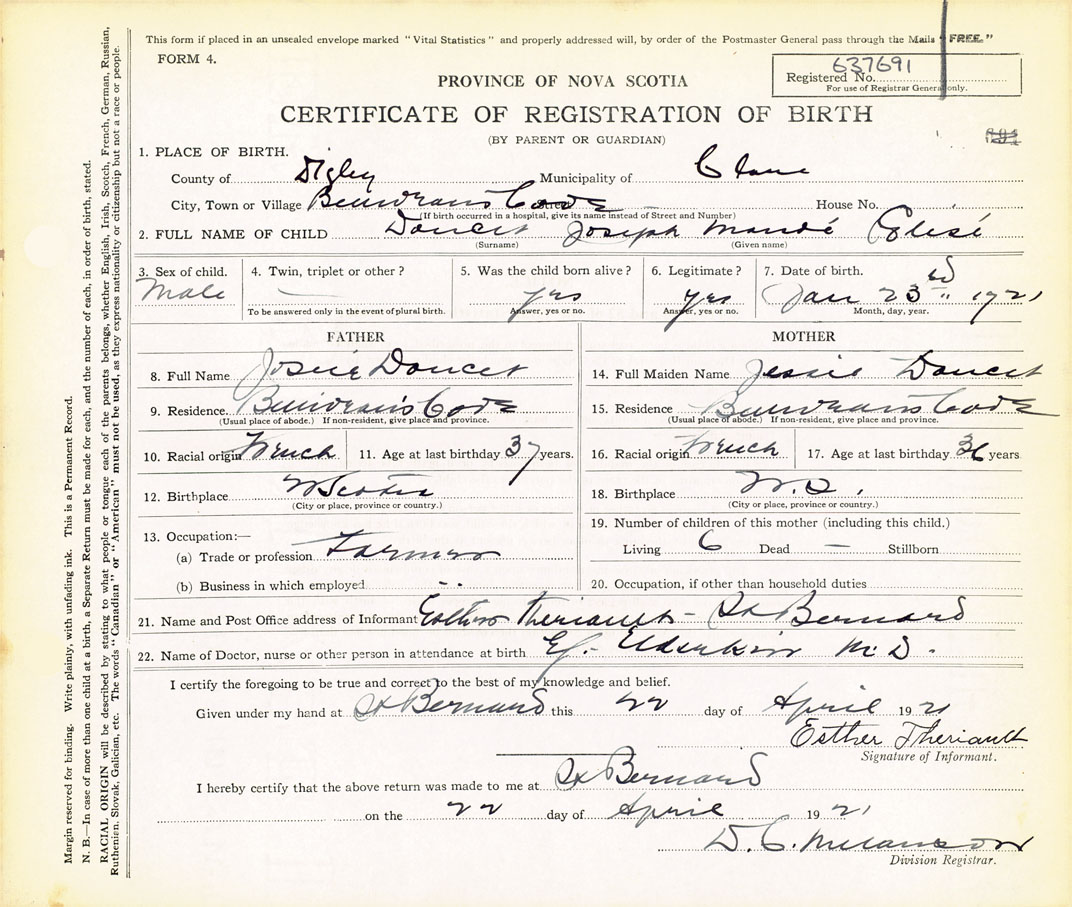 This form if placed in an unsealed envelope marked "Vital Statistics" and properly addressed will, by order of the Postmaster General pass through the Mails "FREE."
FORM 4.
637691
Registered No.
For use of Registrar General only.
PROVINCE OF NOVA SCOTIA
CERTIFICATE OF REGISTRATION OF BIRTH
(BY PARENT OR GUARDIAN)
1. PLACE OF BIRTH.
County of Digby Municipality of Clare
City, Town or Village House No.
(If birth occurred in a hospital, give its name instead of Street and Number)
2. FULL NAME OF CHILD Doucet Joseph Mandé Eglisé
(Surname) (Given name)
3. Sex of child. 4. Twin, triplet or other? 5. Was the child born alive? 6. Legitimate? 7. Date of birth.
Male — yes yes Jan 23rd 1921
To be answered only in the event of plural birth. Answer, yes or no. Answer, yes or no. Month, day, year.
FATHER MOTHER
8. Full Name Doucet 14. Full Maiden Name Jessie Doucet
9. Residence Cove 15. Residence Cove
(Usual place of abode.) If non-resident, give place and province. (Usual place of abode.) If non-resident, give place and province.
10. Racial origin French 11. Age at last birthday 37 years. 16. Racial origin French 17. Age at last birthday 36 years
12. Birthplace N Scotia 18. Birthplace N.S.
(City or place, province or country.) (City or place, province or country.)
13. Occupation:— 19. Number of children of this mother (including this child.)
(a) Trade or profession Farmer Living 6 Dead — Stillborn
(b) Business in which employed 20. Occupation, if other than household duties
21. Name and Post Office address of Informant Esther Theriault - St Bernard
22. Name of Doctor, nurse or other person in attendance at birth Elderkin M.D.
I certify the foregoing to be true and correct to the best of my knowledge and belief.
Given under my hand at St Bernard this 22 day of April 1921
Esther Theriault
Signature of Informant.
I hereby certify that the above return was made to me at St Bernard
on the 22 day of April 1921
D. C. Melanson
Division Registrar.
Margin reserved for binding. Write plainly, with unfading ink. This is a Permanent Record.
N. B.—In case of more than one child at a birth, a Separate Return must be made for each, and the number of each, in order of birth, stated.
RACIAL ORIGIN will be described by stating to what people or tongue each of the parents belongs, whether English, Irish, Scotch, French, German, Russian,
Ruthenien, Slovak, Galician, etc. The words "Canadian" or "American" must not be used, as they express nationality or citizenship but not a race or people.